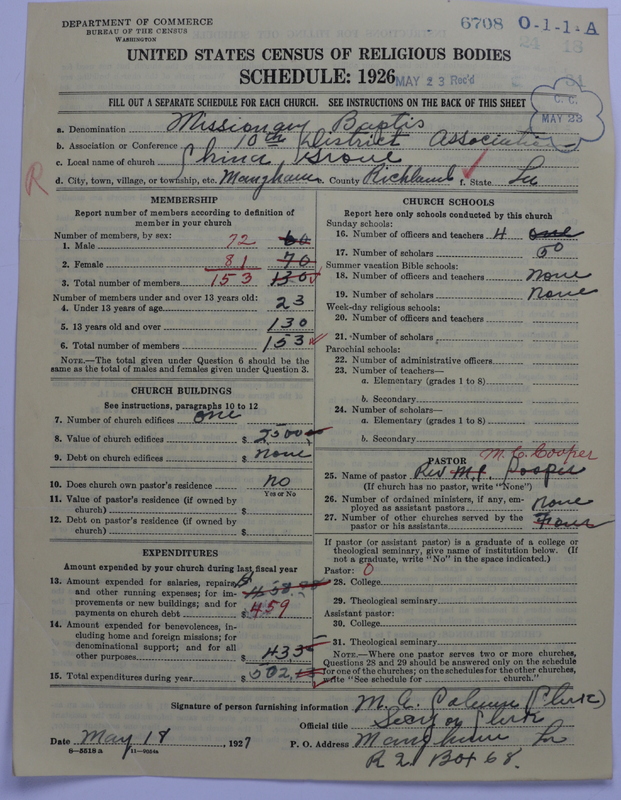 DEPARTMENT OF COMMERCE
BUREAU OF THE CENSUS
WASHINGTON
6708 0-1-1-A
24 18
UNITED STATES CENSUS OF RELIGIOUS BODIES
SCHEDULE: 1926
MAY 23 Rec'd
C. C.
MAY 23
FILL OUT A SEPARATE SCHEDULE FOR EACH CHURCH. SEE INSTRUCTIONS ON THE BACK OF THIS SHEET
a. Denomination Missionary Baptis
b. Association or Conference 10th District Association
c. Local name of church China Grove
d. City, town, village, or township, etc. Mangham e. County Richland f. State La
R
MEMBERSHIP
Report number of members according to definition of member in your church
Number of members, by sex:
1. Male 72 60
2. Female 81 70
3. Total number of members 153 130
Number of members under and over 13 years old:
4. Under 13 years of age 23
5. 13 years old and over 130
6. Total number of members 153
NOTE.—The total given under Question 6 should be the
same as the total of males and females given under Question 3.
CHURCH BUILDINGS
See instructions, paragraphs 10 to 12
7. Number of church edifices one
8. Value of church edifices $ 2500
9. Debt on church edifices $ none
10. Does church own pastor's residence? no
Yes or No
11. Value of pastor's residence (if owned by
church) $
12. Debt on pastor's residence (if owned by
church) $
EXPENDITURES
Amount expended by your church during last fiscal year
13. Amount expended for salaries, repairs,
and other running expenses; for im-
provements or new buildings; and for
payments on church debt $ 459
14. Amount expended for benevolences, in-
cluding home and foreign missions; for
denominational support; and for all
other purposes $ 43
15. Total expenditures during year $ 502
CHURCH SCHOOLS
Report here only schools conducted by this church
Sunday schools:
16. Number of officers and teachers 4 one
17. Number of scholars 50
Summer vacation Bible schools:
18. Number of officers and teachers none
19. Number of scholars none
Week-day religious schools:
20. Number of officers and teachers
21. Number of scholars
Parochial schools:
22. Number of administrative officers
23. Number of teachers—
a. Elementary (grades 1 to 8)
b. Secondary
24. Number of scholars—
a. Elementary (grades 1 to 8)
b. Secondary
PASTOR
M. C. Cooper
25. Name of pastor Rev M. C. Cooper
(If church has no pastor, write "None")
26. Number of ordained ministers, if any, em-
ployed as assistant pastors none
27. Number of other churches served by the
pastor or his assistants
If pastor (or assistant pastor) is a graduate of a college or
theological seminary, give name of institution below. (If
not a graduate, write "No" in the space indicated.)
Pastor: 0
28. College
29. Theological seminary
Assistant pastor:
30. College
31. Theological seminary
NOTE.—Where one pastor serves two or more churches,
Questions 28 and 29 should be answered only on the schedule
for one of the churches; on the schedules for the other churches,
write "See schedule for church."
Signature of person furnishing information M. C. (Clerk)
Official title Secy or Clerk
Date May 18, 1927 P. O. Address Mangham La
8-5518 a 11-9024a
R 2 Box 68.